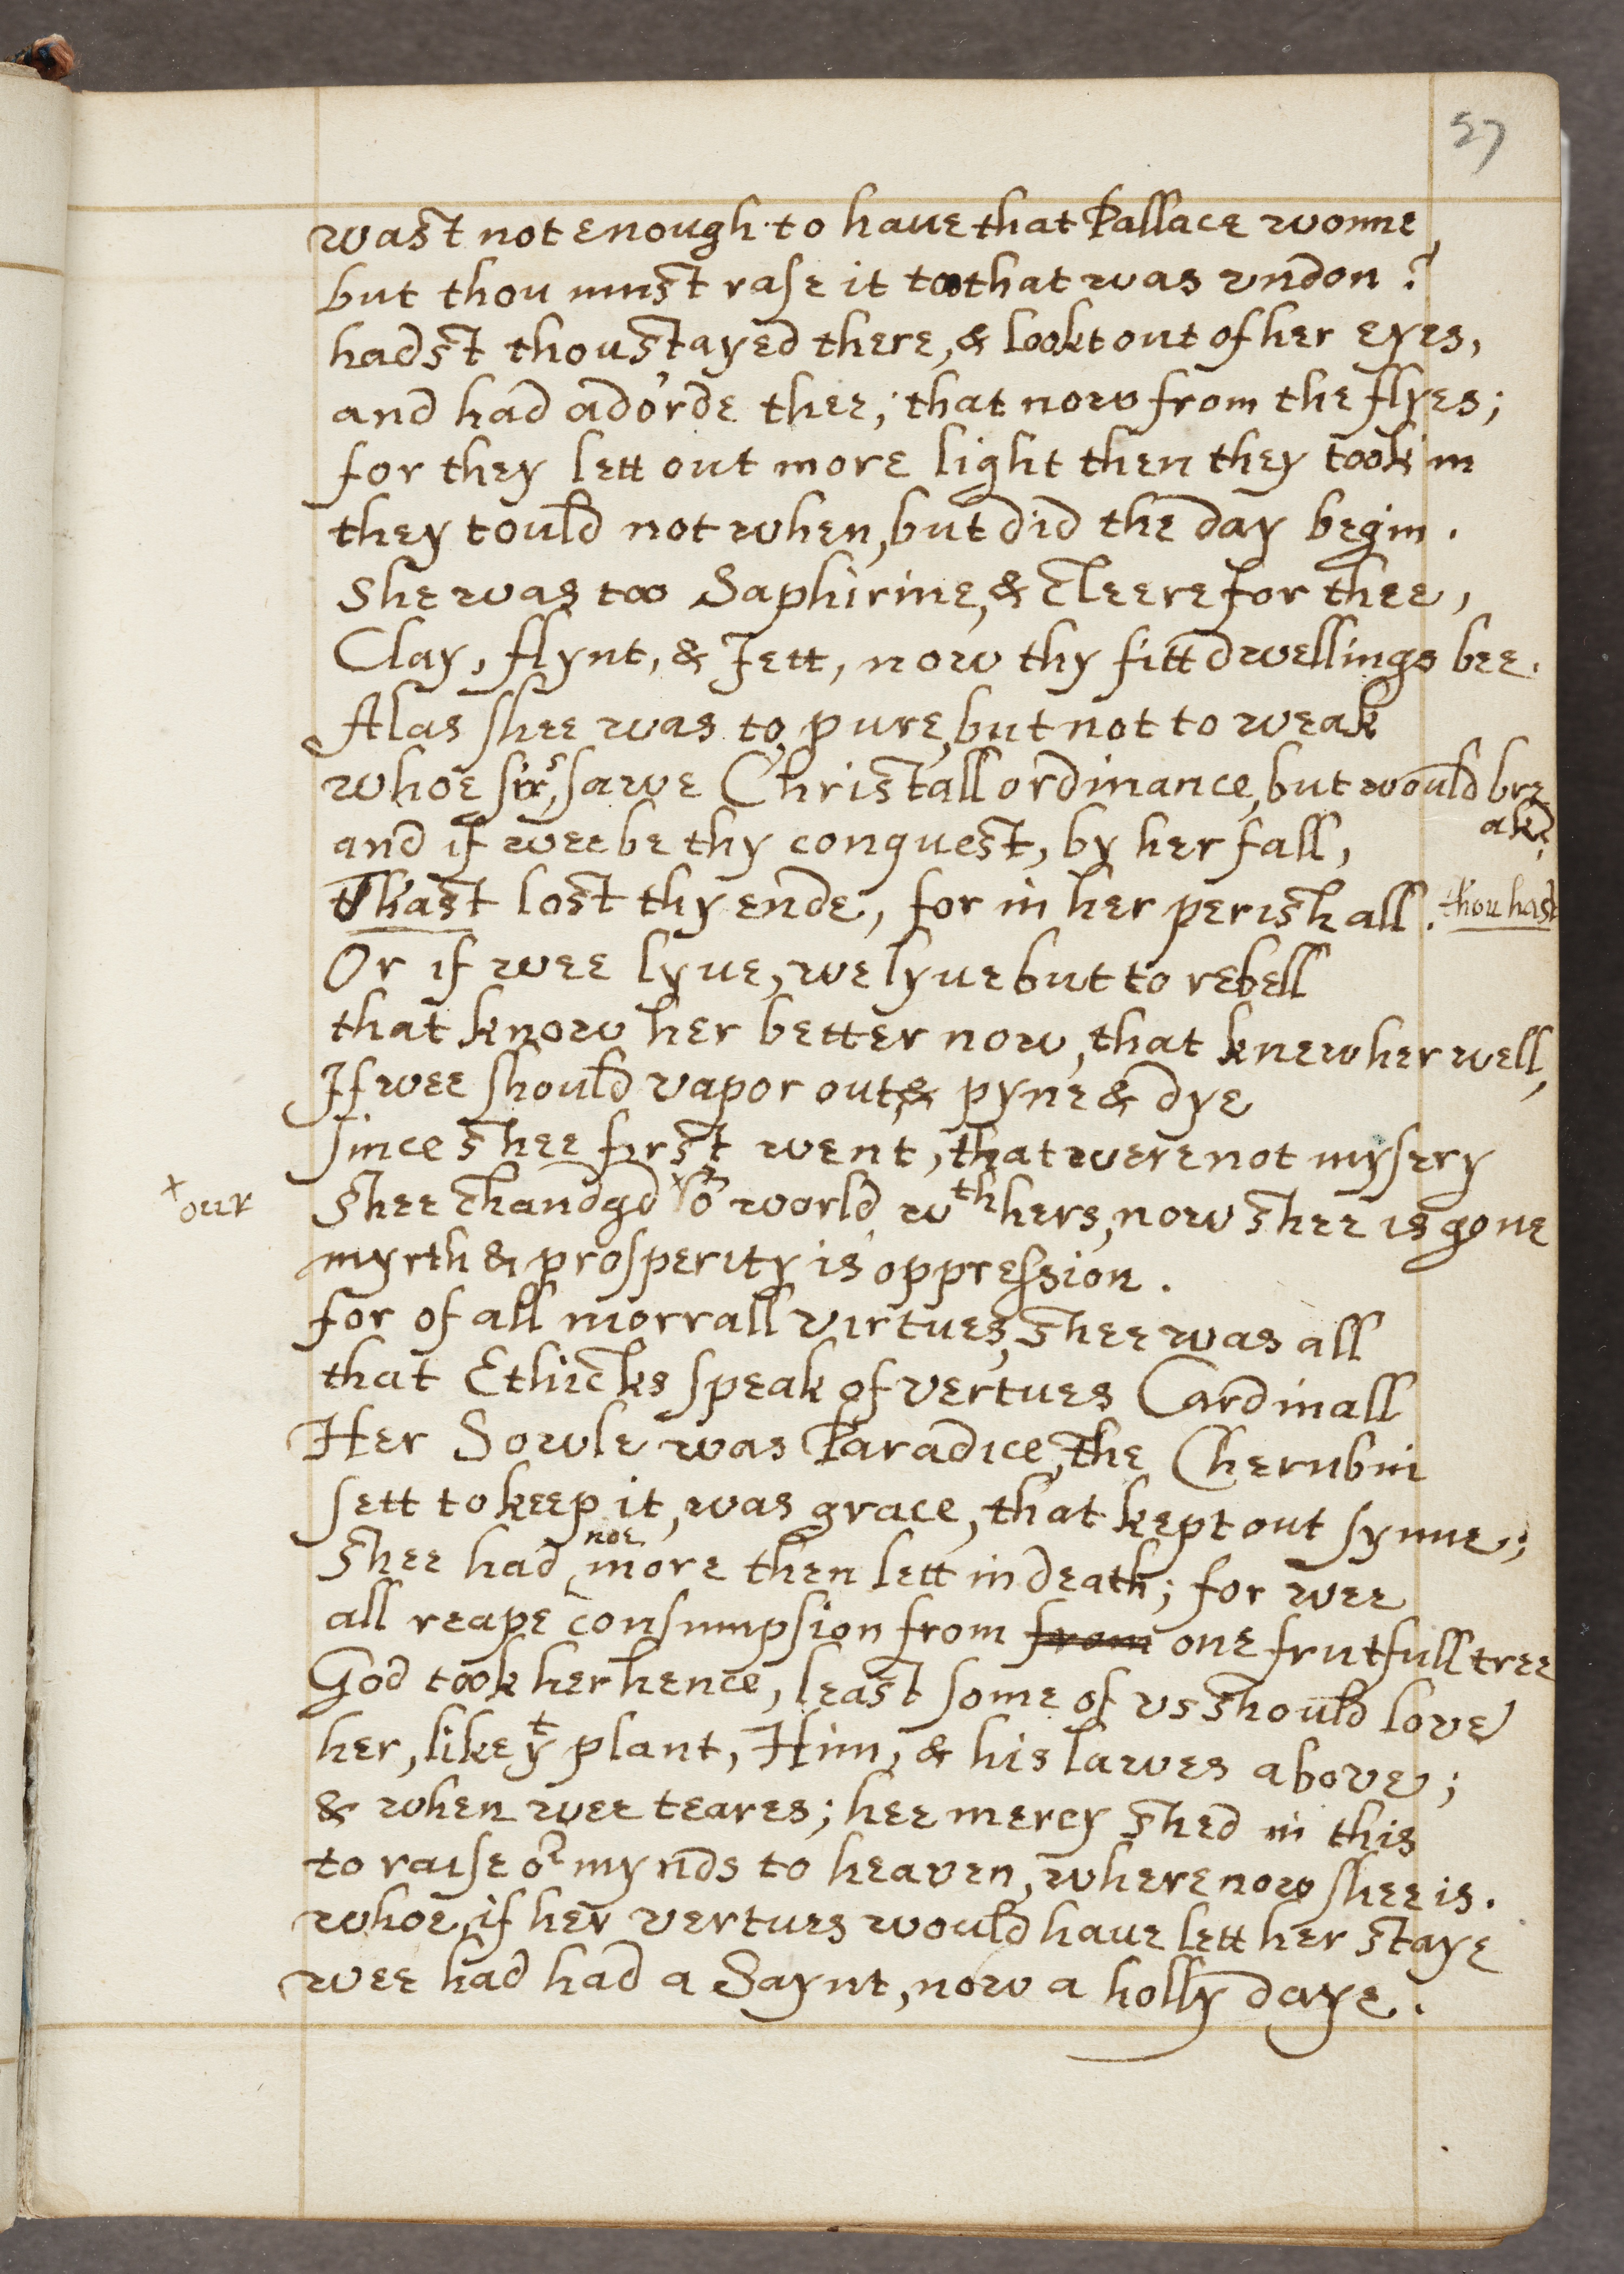 57
wast not enough to haue that Pallace wonne,
but thou must rase it too that was vndon?
hadst thou stayed there, & lookt out of her eyes,
and had ador'de thee; that now from the flyes;
for they lett out more light then they took in
they tould not when, but did the day begin.
She was too Saphirine, & cleere for thee,
Clay, flynt, & Jett, now thy fitt dwellings bee.
Alas shee was to pure, but not to weak
whoe ere sawe Christall ordinance, but would bre
ak?
and if wee be thy conquest, by her fall,
th'hast lost thy ende, for in her perish all. thou hast
Or if wee lyue, we lyue but to rebell
that know her better now, that knew her well,
If wee should vapor out, & pyne & dye
since shee first went, that were not mysery
+our Shee chandgd +or world wth hers, now shee is gone
myrth & prosperity is oppression.
for of all morrall virtues, shee was all
that Ethicks speak of vertues Cardinall
Her Sowle was Paradice, the Cherubin
sett to keep it, was grace, that kept out synne;
Shee had noe more then lett in death; for wee
all reape consumpsion from from one frutfull tree
God took her hence, least some of vs should love
her, like yt plant, Him, & his lawes above;
& when wee teares; hee mercy shed in this
to raise or mynds to heaven, where now shee is.
whoe, if her vertues would haue lett her staye
wee had had a Saynt, now a holly daye.